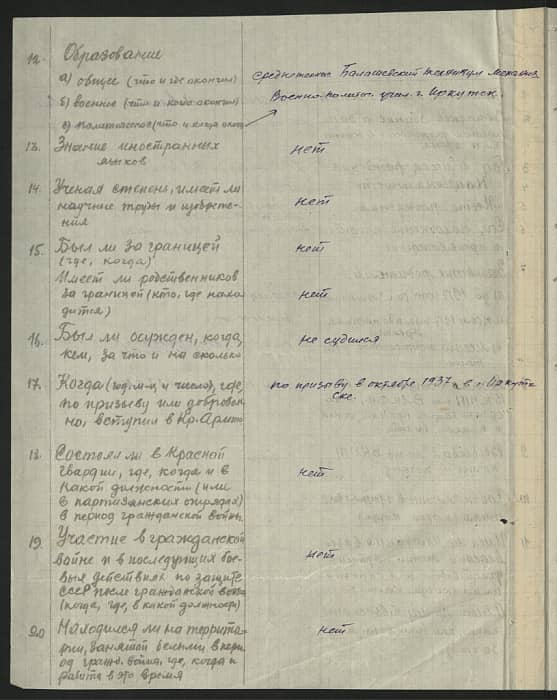 12. Образование
а) общее (что и где окончил) Среднетехнич. Балашевский техникум механиз.
б) военное (что и когда окончил) Военно-политич. учил. г. Иркутск.
в) политическое (что и когда оконч)
13. Знание иностранных нет
языков
14. Ученая степень, имеет ли
научные труды и изобрете- нет
ния
15. Был ли за границей нет
(где, когда)
Имеет ли родственников
за границей (кто, где нахо- нет
дится)
16. Был ли осужден, когда, не судился
кем, за что и на сколько
17. Когда (год, м-ц и число), где, по призыву в октябре 1937 в г. Иркут
по призыву или доброволь- ске
но, вступил в Кр. Армию
18. Состоял ли в Красной
гвардии, где, когда и в нет
какой должности (или
в партизанских отрядах)
в период гражданской войны
19. Участие в гражданской
войне и в последующих бое- нет
вых действиях по защите
СССР после гражданской войны
(когда, где, в какой должности)
20 Находился ли на террито- нет
рии, занятой белыми в пери-
од гражд. войны, где, когда и
работа в это время